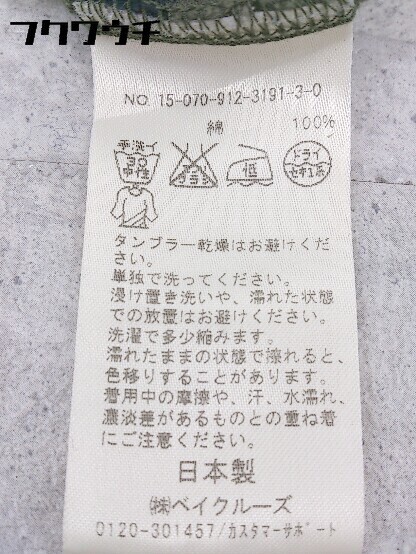 フクワウチ
NO. 15-070-912-3191-3-0
綿 100%
手洗イ
30
中性
エンソ
サラシ
低
ドライ
セキユ系
タンブラー乾燥はお避けくだ
さい。
単独で洗ってください。
浸け置き洗いや、濡れた状態
での放置はお避けください。
洗濯で多少縮みます。
濡れたままの状態で擦れると、
色移りすることがあります。
着用中の摩擦や、汗、水濡れ、
濃淡差があるものとの重ね着
にご注意ください。
日本製
㈱ベイクルーズ
0120-301457/カスタマーサポート